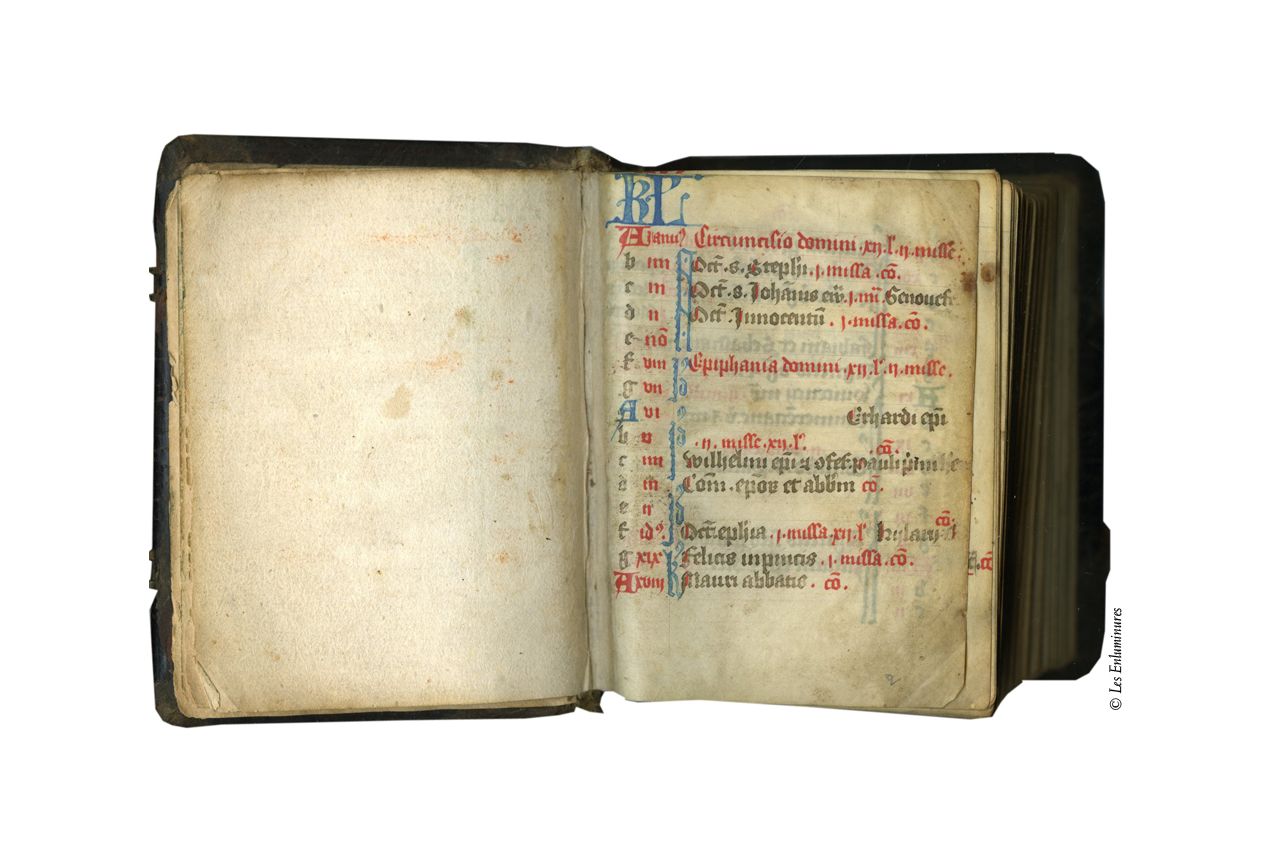 KL
A Januarius Circumcisio domini .xii. l'. ii. misse.
b iiii Oct. s. Stephi. i. missa. co.
c iii Oct. s. Johannis ew. i. m. Genouefe
d ii Oct. Innocentum. i. missa. co.
e no
f viii Epiphania domini .xii. l'. ii. misse.
g vii
A vi Erhardi epi
b v . ii. misse. xii. l'. co.
c iiii Wilhelmi epi pauli
d iii Com. epor et abbm co.
e ii
f idus Oct. ephia. i. missa xii. l' hylarii co.
g xix Felicis in pincis. i. missa. co.
A xviii Mauri abbatis. co.
co
2
© Les Enluminures